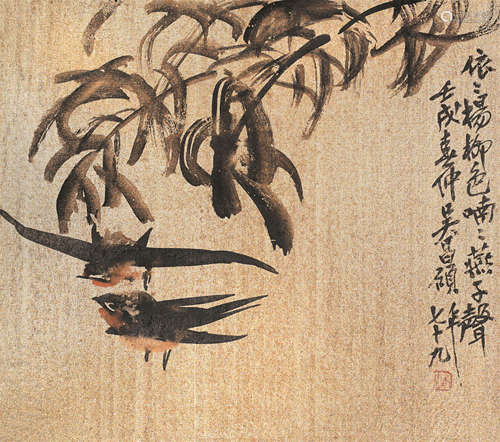 依〻楊柳色喃〻燕子聲
壬戌春仲吳昌碩年七十九